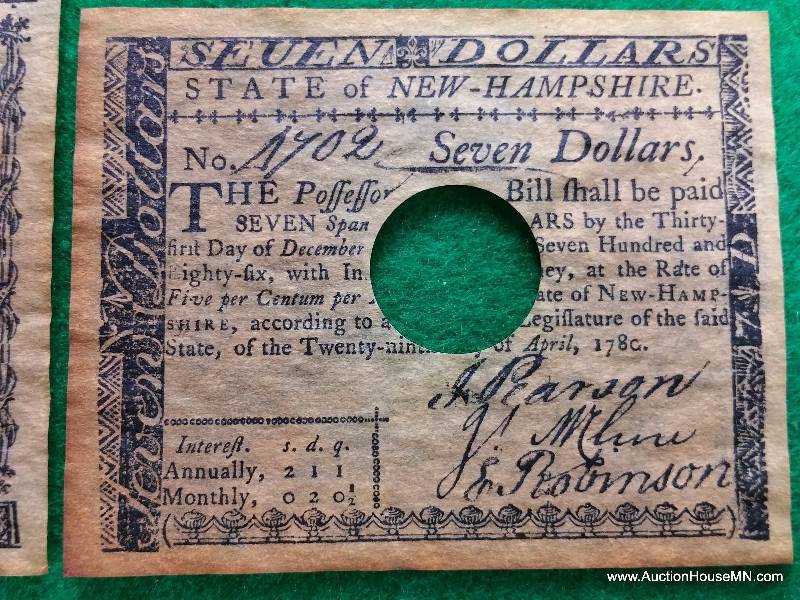 SEVEN DOLLARS
STATE of NEW-HAMPSHIRE.
No. 1702 Seven Dollars.
THE Poſſeſſor Bill ſhall be paid
SEVEN Span ARS by the Thirty-
firſt Day of December Seven Hundred and
Eighty-ſix, with In ney, at the Rate of
Five per Centum per ate of NEW-HAMP-
SHIRE, according to a Legiſlature of the ſaid
State, of the Twenty-nin of April, 1780.
J. Pearson
Intereſt. s. d. q.
Annually, 2 1 1
Monthly, 0 2 0 ½
E. Robinson
Seven Dollars
www.AuctionHouseMN.com